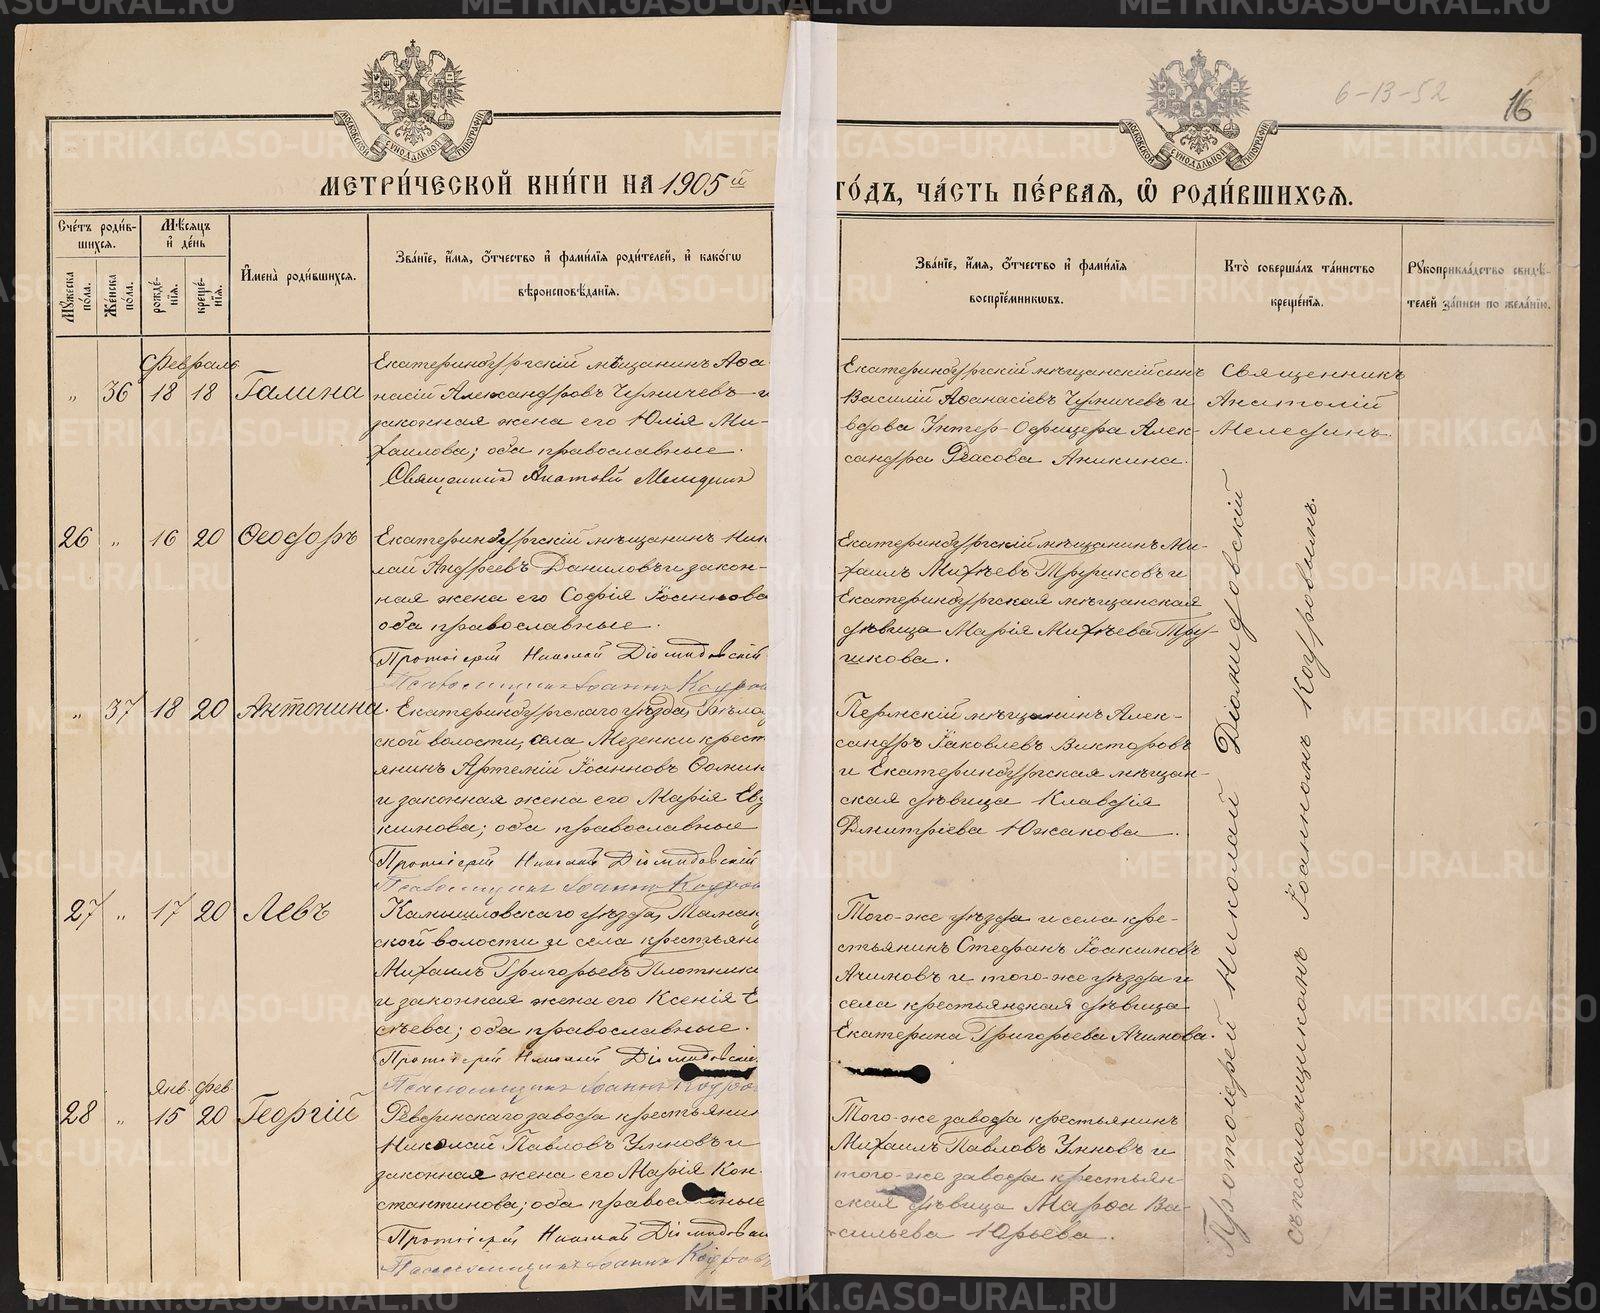 6-13-52
16
МОСКОВСКОЙ СѴНОДАЛЬНОЙ ТИПОГРАФІИ
МОСКОВСКОЙ СѴНОДАЛЬНОЙ ТИПОГРАФІИ
МЕТРИ́ЧЕСКОЙ КНИ́ГИ НА 1905й
ГО́ДЪ, ЧА́СТЬ ПЕ́РВАѦ, Ѡ҆ РОДИ́ВШИХСѦ.
Сче́тъ роди́в-
шихсѧ.
Мꙋжеска по́ла.
Же́нска по́ла.
Мѣ́сѧцъ
и҆ де́нь
рожде́-
нїѧ.
креще́-
нїѧ.
И҆мена̀ роди́вшихсѧ.
Зва́нїе, и҆́мѧ, ѻ҆́тчество и҆ фами́лїѧ роди́телей, и҆ како́гѡ
вѣроисповѣ́данїѧ.
Зва́нїе, и҆́мѧ, ѻ҆́тчество и҆ фами́лїѧ
воспрїе́мникѡвъ.
Кто̀ соверша́лъ та́инство
креще́нїѧ.
Рꙋкоприкла́дство свидѣ́-
телей за́писи по жела́нїю.
Февраль
„ 36 18 18 Галина
Екатеринбургскій мѣщанинъ Аѳа
насій Александровъ Чурмичевъ и
законная жена его Юлія Ми-
хаилова; оба православные.
Священникъ Анатолій Мелединъ
Екатеринбургскій мѣщанскій сынъ
Василій Аѳанасіевъ Чурмичевъ и
вдова Унтер-Офицера Алек-
сандра Власова Аникина.
Священникъ
Анатолій
Мелединъ.
26 „ 16 20 Ѳеодоръ
Екатеринбургскій мѣщанинъ Ник
лай Андреевъ Даниловъ и закон-
ная жена его Софія Іоаннова
оба православные.
Протоіерей Николай Діомидовскій
Псаломщикъ Іоаннъ Кодров
Екатеринбургскій мѣщанинъ Ми-
хаилъ Михѣевъ Трушковъ и
Екатеринбургская мѣщанская
дѣвица Марія Михѣева Тру-
шкова.
„ 37 18 20 Антонина.
Екатеринбургскаго уѣзда, Бѣло
ской волости, села Мезенки крест
янинъ Артемій Іоанновъ Ѳомин
и законная жена его Марія Евд
кимова; оба православные
Протоіерей Николай Діомидовскій
Псаломщикъ Іоаннъ Кодров
Пермскій мѣщанинъ Алек-
сандръ Іаковлевъ Викторовъ
и Екатеринбургская мѣщан-
ская дѣвица Клавдія
Дмитріева Южакова.
27 „ 17 20 Левъ
Камышловскаго уѣзда,
ской волости и села крестьяни
Михаилъ Григорьевъ Плотнико
и законная жена его Ксенія Е
сѣева; оба православные.
Протоіерей Николай Діомидовскій
Псаломщикъ Іоаннъ Кодро
Того-же уѣзда и села кре-
стьянинъ Стефанъ Іоакимовъ
Ачимовъ и того-же уѣзда и
села крестьянская дѣвица
Екатерина Григорьева Ачимова.
Янв. Фев
28 „ 15 20 Георгій
Ревдинскаго завода крестьянин
Николай Павловъ Умновъ и
законная жена его Марія Кон-
стантинова; оба православные
Протоіерей Николай Діомидовск
Псаломщикъ Іоаннъ Кодров
Того-же завода крестьянинъ
Михаилъ Павловъ Умновъ и
того-же завода крестьян-
ская дѣвица Марѳа Ва-
сильева Юрьева.
Протоіерей Николай Діомидовскій
съ псаломщикомъ Іоанномъ Кодровымъ.
METRIKI.GASO-URAL.RU